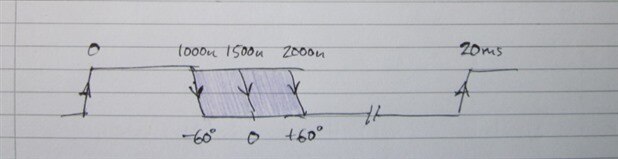 0 1000u 1500u 2000u 20ms
-60° 0 +60°